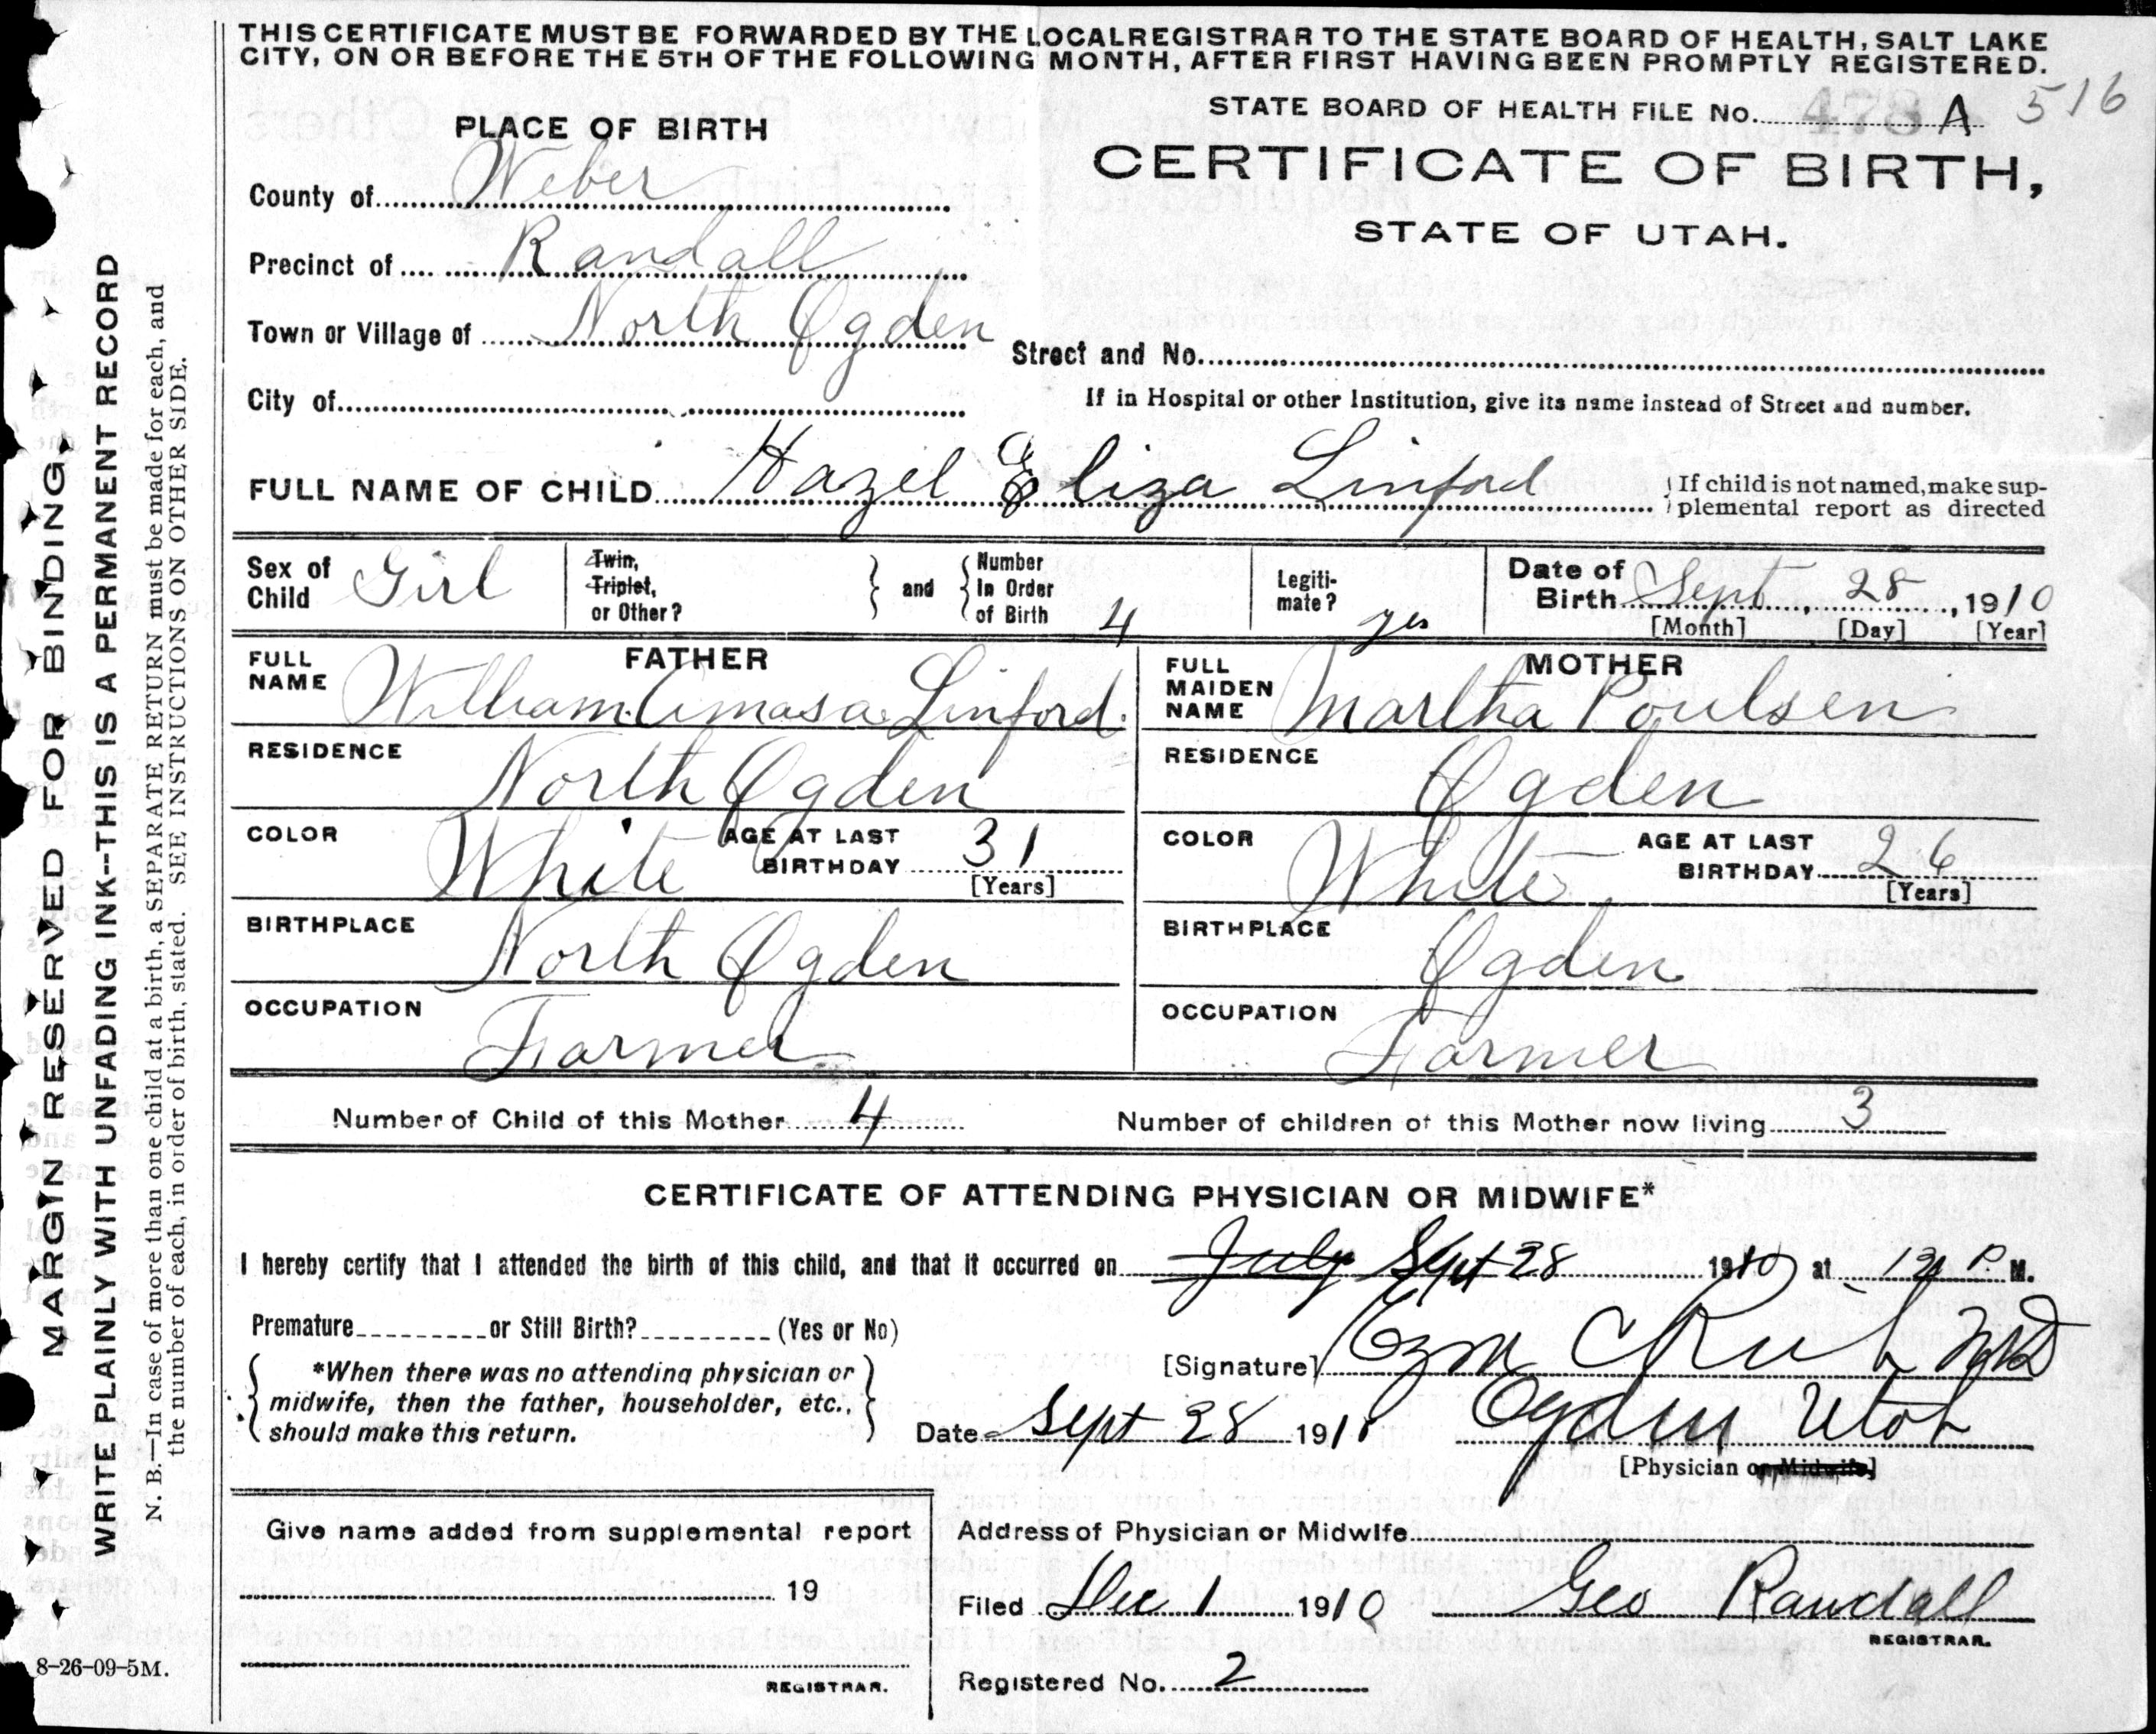 THIS CERTIFICATE MUST BE FORWARDED BY THE LOCAL REGISTRAR TO THE STATE BOARD OF HEALTH, SALT LAKE
CITY, ON OR BEFORE THE 5TH OF THE FOLLOWING MONTH, AFTER FIRST HAVING BEEN PROMPTLY REGISTERED.
STATE BOARD OF HEALTH FILE No. 478 A 516
PLACE OF BIRTH
CERTIFICATE OF BIRTH,
STATE OF UTAH.
County of Weber
Precinct of Randall
Town or Village of North Ogden
Street and No.
City of
If in Hospital or other Institution, give its name instead of Street and number.
FULL NAME OF CHILD Hazel Eliza Linford
If child is not named, make sup-
plemental report as directed
Sex of Child Girl
Twin,
Triplet,
or Other?
and
Number
In Order
of Birth 4
Legiti-
mate? yes
Date of
Birth Sept, 28, 1910
[Month] [Day] [Year]
FATHER
FULL NAME William Amasa Linford
RESIDENCE North Ogden
COLOR White AGE AT LAST BIRTHDAY 31 [Years]
BIRTHPLACE North Ogden
OCCUPATION Farmer
MOTHER
FULL MAIDEN NAME Martha Poulsen
RESIDENCE Ogden
COLOR White AGE AT LAST BIRTHDAY 26 [Years]
BIRTHPLACE Ogden
OCCUPATION Farmer
Number of Child of this Mother 4 Number of children of this Mother now living 3
CERTIFICATE OF ATTENDING PHYSICIAN OR MIDWIFE*
I hereby certify that I attended the birth of this child, and that it occurred on July Sept 28 1910 at P. M.
Premature or Still Birth? (Yes or No)
[Signature] M D
*When there was no attending physician or
midwife, then the father, householder, etc.,
should make this return.
Date Sept 28 1910 Ogden Utah
[Physician or Midwife]
Give name added from supplemental report
19
REGISTRAR.
Address of Physician or Midwife
Filed Dec 1 1910 Geo Randall
REGISTRAR.
Registered No. 2
8-26-09-5M.
MARGIN RESERVED FOR BINDING.
WRITE PLAINLY WITH UNFADING INK--THIS IS A PERMANENT RECORD
N. B.—In case of more than one child at a birth, a SEPARATE RETURN must be made for each, and
the number of each, in order of birth, stated. SEE INSTRUCTIONS ON OTHER SIDE.